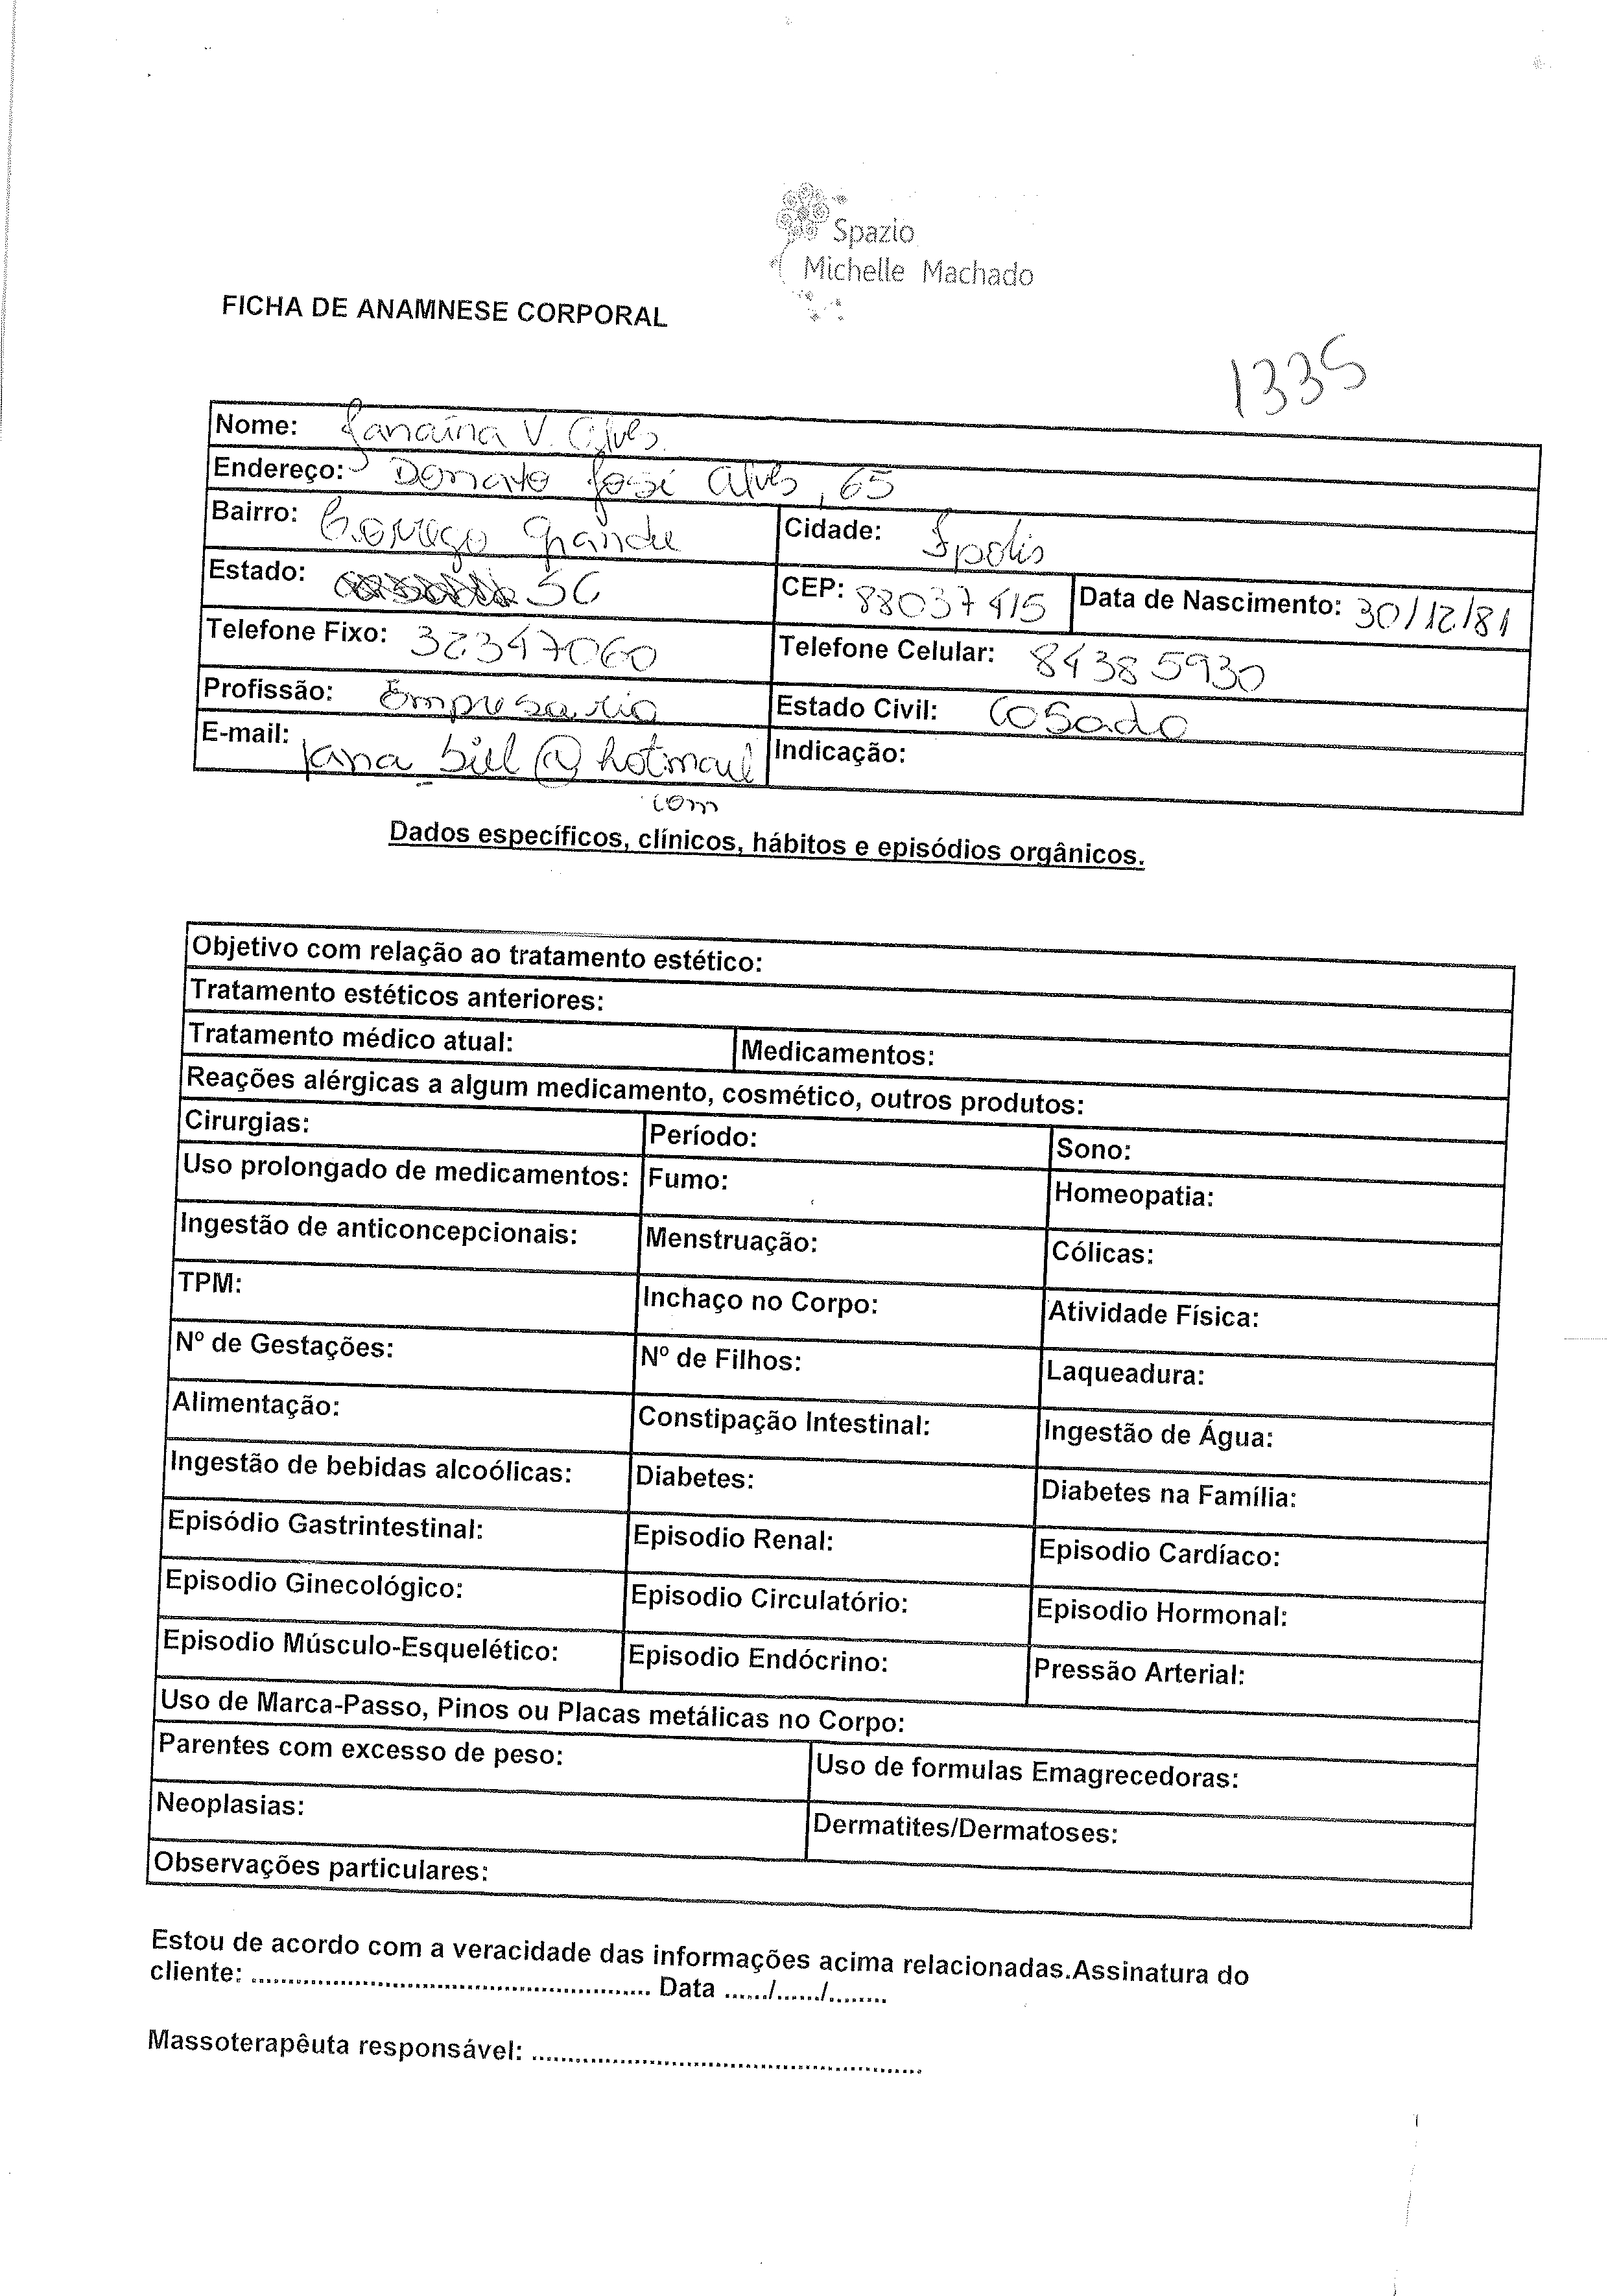 Spazio
Michelle Machado
FICHA DE ANAMNESE CORPORAL
1335
Nome: Janaina V. Alves
Endereço: Donato José Alves, 65
Bairro: Corrego Grande Cidade: Fpolis
Estado: SC CEP: 88037415 Data de Nascimento: 30/12/81
Telefone Fixo: 32347060 Telefone Celular: 84385930
Profissão: Empresaria Estado Civil: Casado
E-mail: jana_biel@hotmail Indicação:
com
Dados específicos, clínicos, hábitos e episódios orgânicos.
Objetivo com relação ao tratamento estético:
Tratamento estéticos anteriores:
Tratamento médico atual: Medicamentos:
Reações alérgicas a algum medicamento, cosmético, outros produtos:
Cirurgias: Período: Sono:
Uso prolongado de medicamentos: Fumo: Homeopatia:
Ingestão de anticoncepcionais: Menstruação: Cólicas:
TPM: Inchaço no Corpo: Atividade Física:
Nº de Gestações: Nº de Filhos: Laqueadura:
Alimentação: Constipação Intestinal: Ingestão de Água:
Ingestão de bebidas alcoólicas: Diabetes: Diabetes na Família:
Episódio Gastrintestinal: Episodio Renal: Episodio Cardíaco:
Episodio Ginecológico: Episodio Circulatório: Episodio Hormonal:
Episodio Músculo-Esquelético: Episodio Endócrino: Pressão Arterial:
Uso de Marca-Passo, Pinos ou Placas metálicas no Corpo:
Parentes com excesso de peso: Uso de formulas Emagrecedoras:
Neoplasias: Dermatites/Dermatoses:
Observações particulares:
Estou de acordo com a veracidade das informações acima relacionadas.Assinatura do
cliente: ........................................................ Data ....../....../........
Massoterapêuta responsável: ......................................................